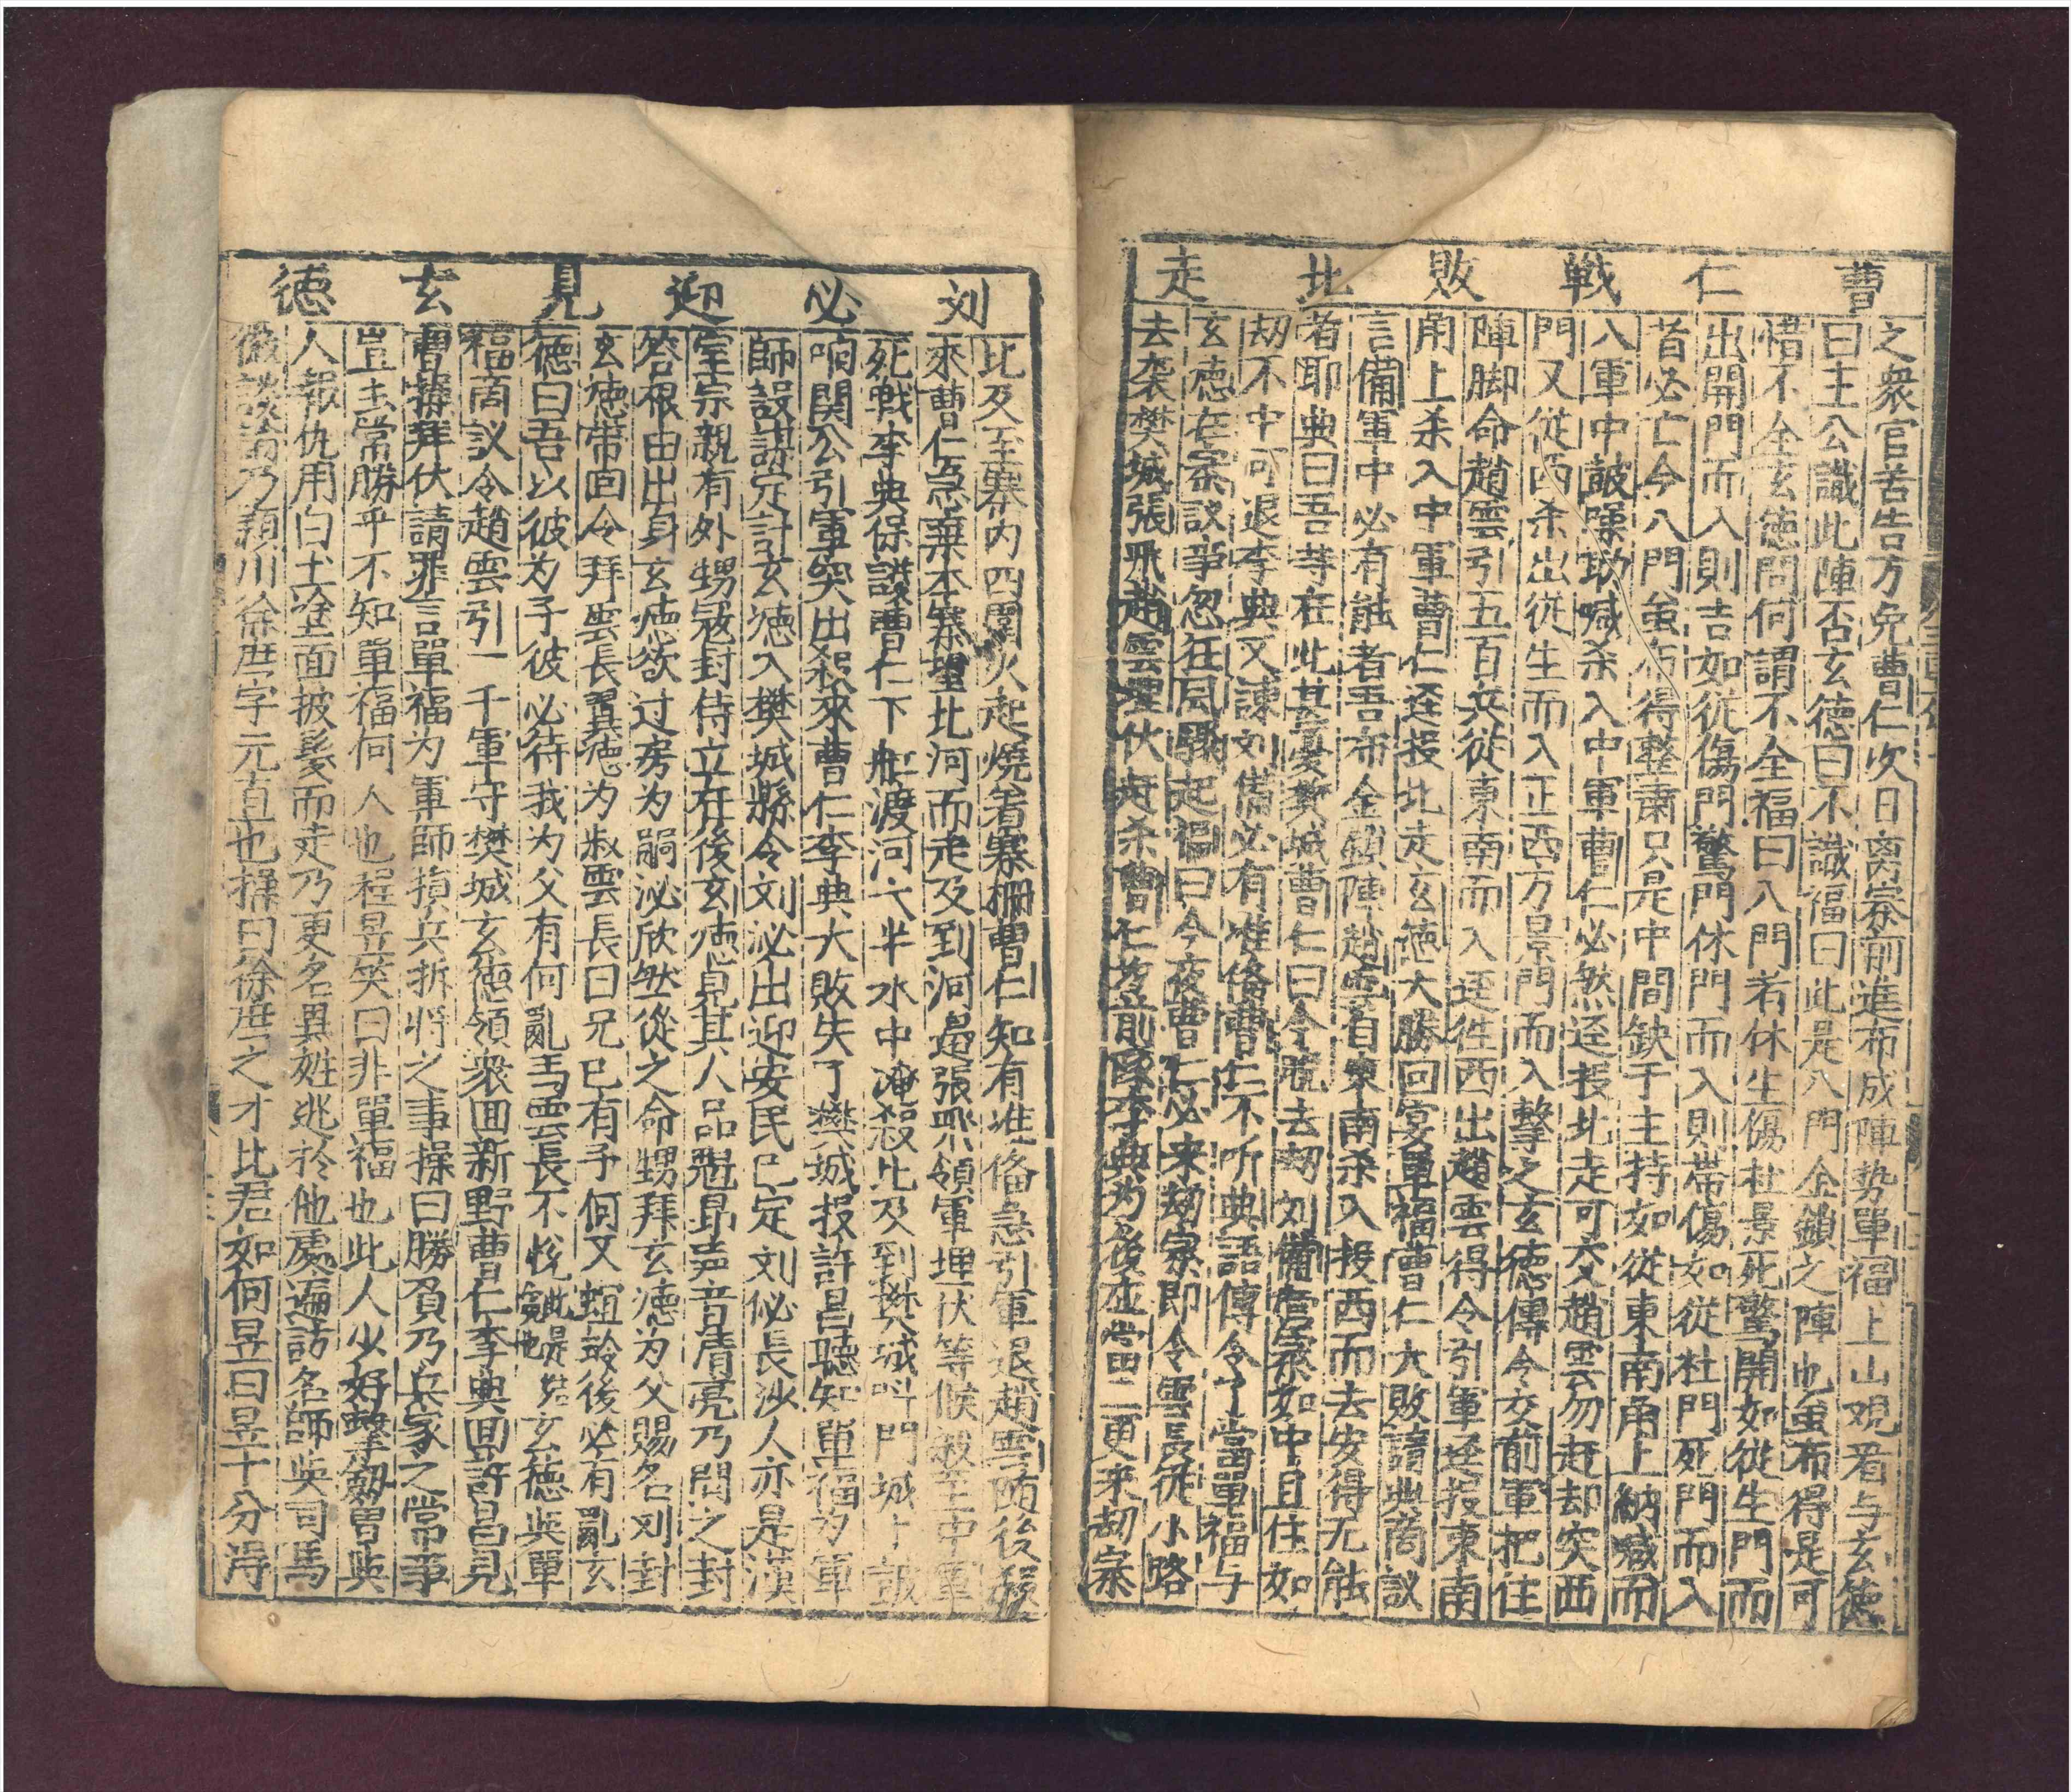 曹仁戦敗北走
之衆官苦告方免曹仁次日离寨前進布成陣势單福上山观看与玄徳
曰主公識此陣否玄徳曰不識福曰此是八門金鎖之陣也虽布得是可
惜不全玄徳問何謂不全福曰八門者休生傷杜景死驚開如從生門而
出開門而入則吉如従傷門驚門休門而入則帯傷如從杜門死門而入
者必亡今八門虽布得整肅只是中間缺于主持如從東南角上納喊而
入軍中皷噪助喊杀入中軍曹仁必然迳投北走可交趙雲勿赶却突西
門又從西杀出従生而入正西方景門而入擊之玄徳傳令交前軍把住
陣脚命趙雲引五百兵從東南而入迳徃西出趙雲得令引軍迳投東南
角上杀入中軍曹仁迳投北走玄徳大勝回寔單福曹仁大敗請典商议
言備軍中必有能者吾布金鎖陣趙雲自東南杀入投西而去安得无能
者耶典曰吾等在此甚憂樊城曹仁曰今晩去刼刘備营寨如中且住如
刼不中可退李典又諌刘備必有准俻曹仁不听典語傳令了當單福与
玄徳在寨議事忽狂風驟起福曰今夜曹仁必来劫寨即令雲長從小路
去袭樊城張飛趙雲埋伏赶杀曹仁為前隊李典为後应當二更来刼寨
刘必迎見玄徳
比及至寨内四圍火起燒着寨柵曹仁知有准俻急引軍退趙雲随後殺
來曹仁急棄本寨望北河而走及到河邉張飛領軍埋伏等候殺至中軍
死戰李典保護曹仁下船渡河大半水中淹殺比及到樊城呌門城上皷
响関公引軍突出殺來曹仁李典大敗失了樊城投許昌聽知單福为軍
師設謀定計玄徳入樊城縣令刘泌出迎安民已定刘泌長沙人亦是漢
室宗親有外甥寇封侍立在後玄徳見其人品魁昂声音清亮乃問之封
答根由出身玄徳欲过房为嗣泌欣然從之命甥拜玄徳为父賜名刘封
玄徳帯回令拜雲長翼徳为叔雲長曰兄已有子何又螟蛉後必有亂玄
徳曰吾以彼为子彼必待我为父有何亂焉雲長不悅玄徳與單
福商议令趙雲引一千軍守樊城玄徳領衆回新野曹仁李典回許昌見
曹操拜伏請罪言單福为軍師損兵折将之事操曰勝負乃兵家之常事
豈主常勝乎不知單福何人也程昱笑曰非單福也此人少好擊劔曽與
人報仇用白土塗面披髮而走乃更名異姓逃於他處遍訪名師與司馬
徽談論乃颖川徐庶字元直也操曰徐庶之才比君如何昱曰昱十分得